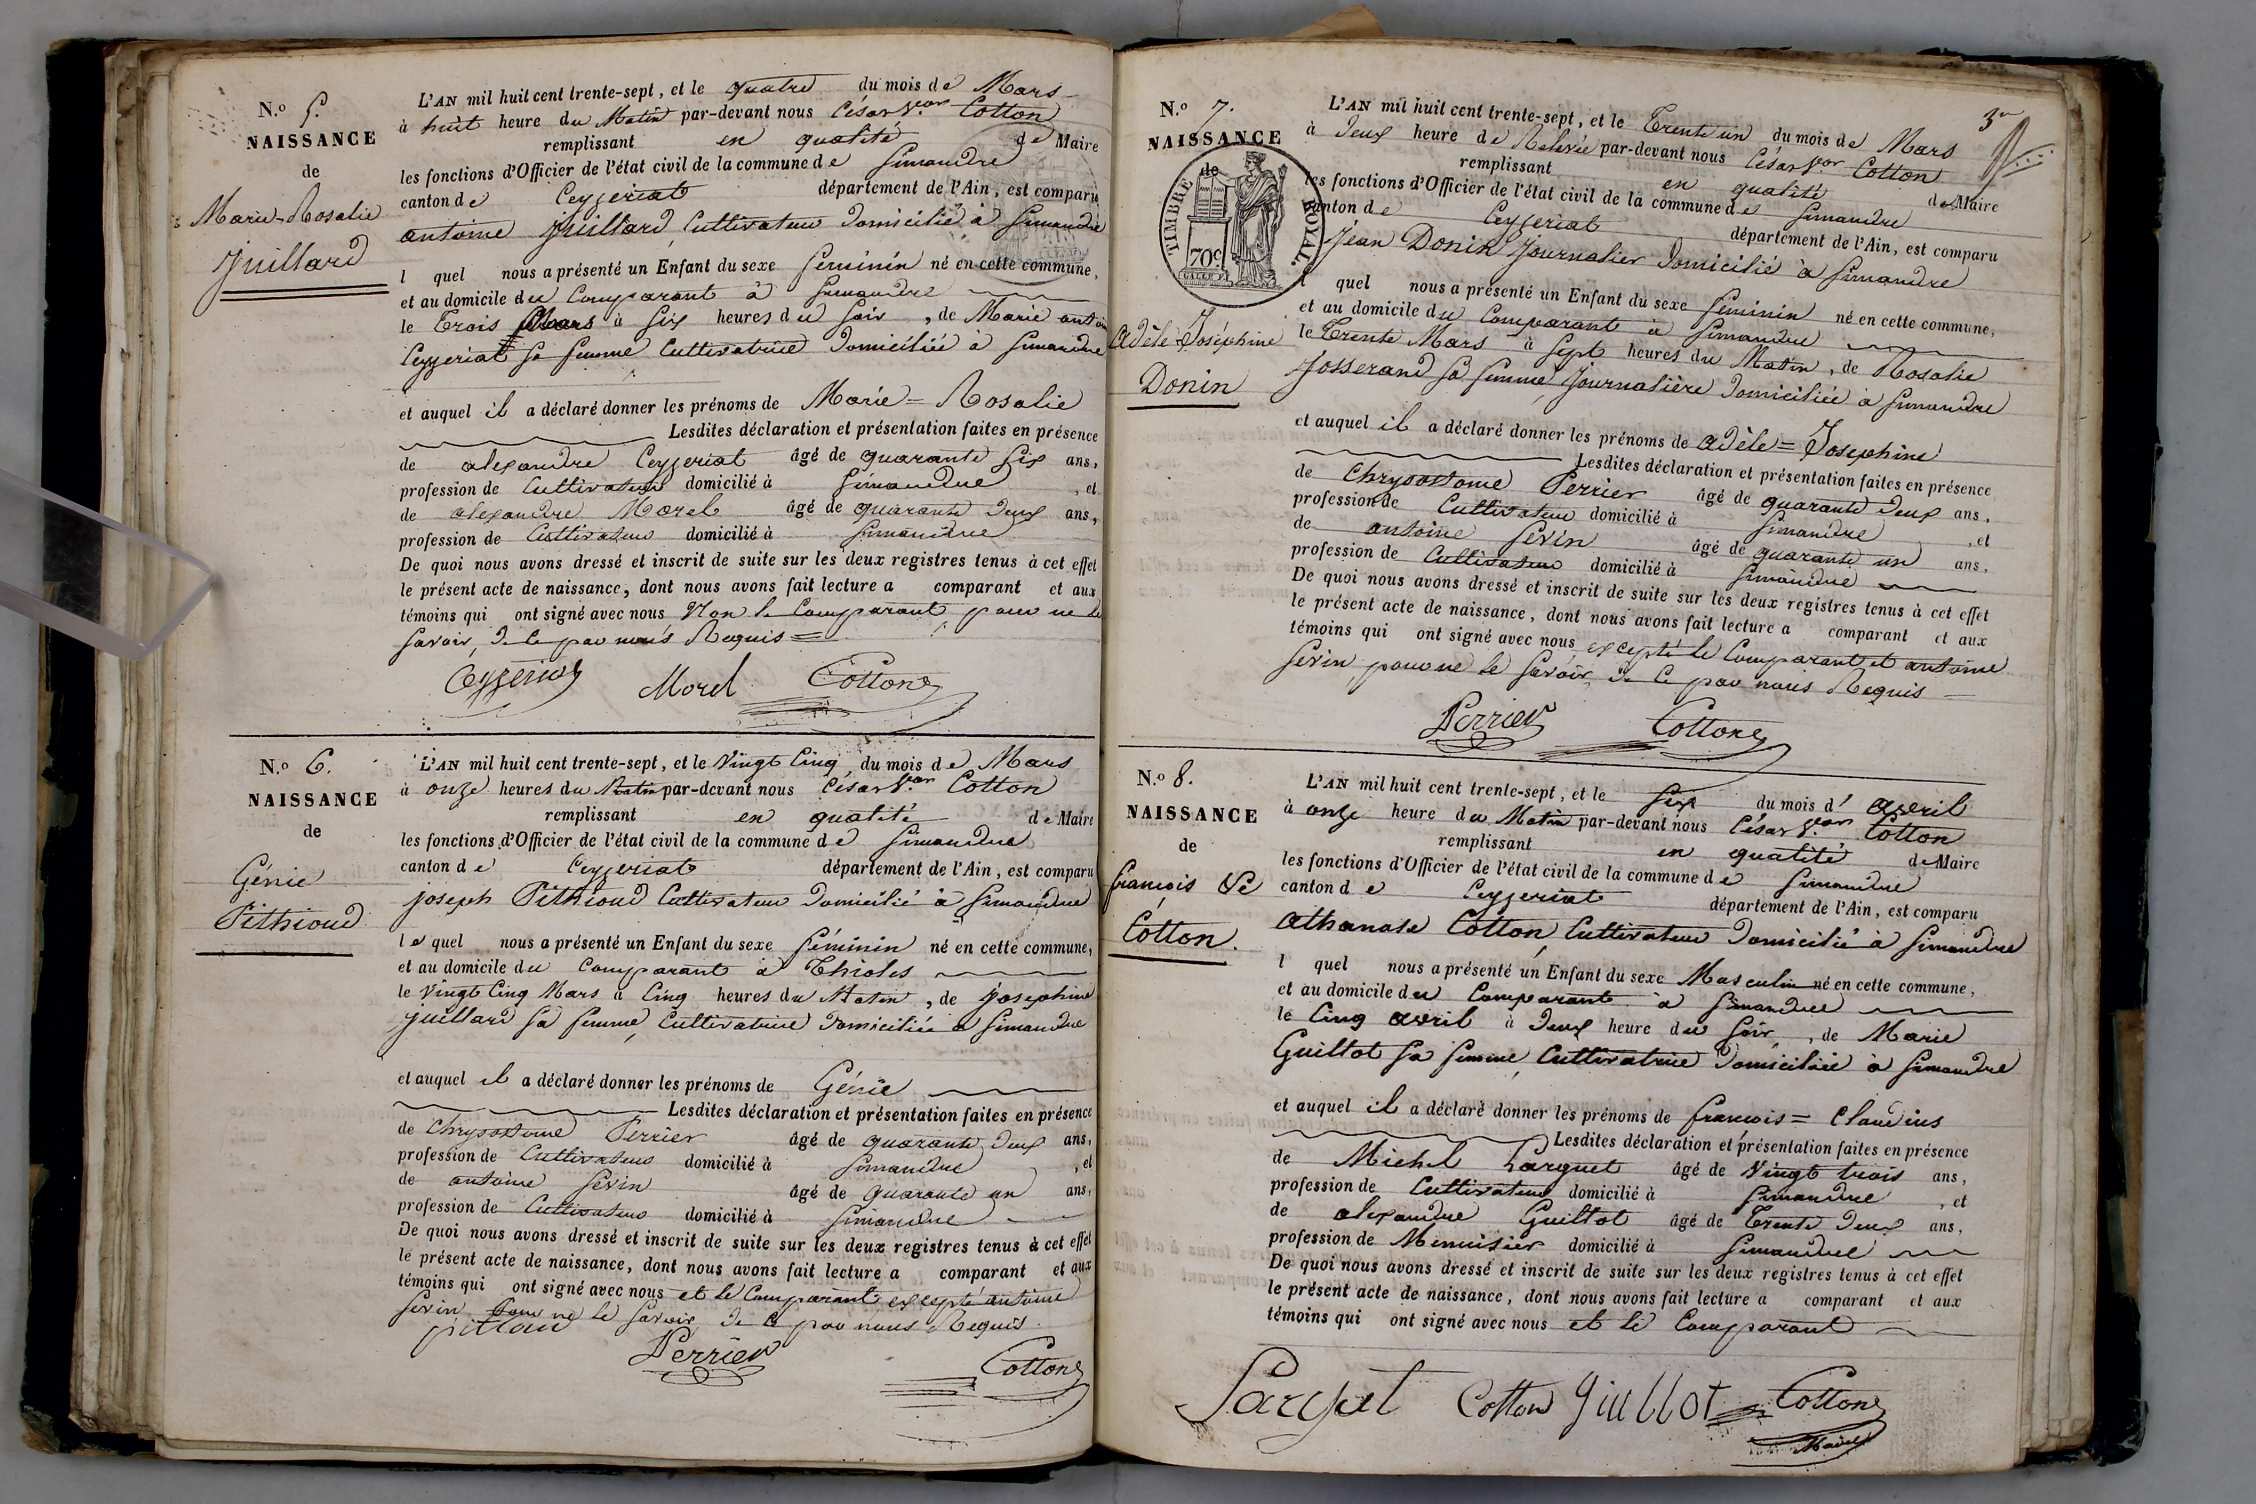 N.o 5.
NAISSANCE
de
Marie-Rosalie
Juillard
L'AN mil huit cent trente-sept, et le quatre du mois de Mars
à huit heure du Matin par-devant nous César Vor Cotton
remplissant en qualité de Maire
les fonctions d'Officier de l'état civil de la commune de Simandre
canton de Ceyzeriat département de l'Ain, est comparu
antoine juillard, Cultivateur Domicilié à Simandre
l quel nous a présenté un Enfant du sexe féminin né en cette commune,
et au domicile du Comparant à Simandre
le Trois Mars à six heures du Soir, de Marie
Ceyzeriat sa femme Cultivatrice Domiciliée à Simandre
et auquel il a déclaré donner les prénoms de Marie=Rosalie
Lesdites déclaration et présentation faites en présence
de alexandre Ceyzeriat âgé de quarante six ans,
profession de Cultivateur domicilié à Simandre, et
de alexandre Morel âgé de quarante Deux ans,
profession de Cultivateur domicilié à Simandre
De quoi nous avons dressé et inscrit de suite sur les deux registres tenus à cet effet
le présent acte de naissance, dont nous avons fait lecture a comparant et aux
témoins qui ont signé avec nous Non le Comparant pour ne le
savoir, de ce par nous Requis=
Ceyzeriat Morel Cotton
N.o 6.
NAISSANCE
de
Génie
Pithioud
L'AN mil huit cent trente-sept, et le Vingt Cinq du mois de Mars
à onze heures du Matin par-devant nous César Vor Cotton
remplissant en qualité de Maire
les fonctions d'Officier de l'état civil de la commune de Simandre
canton de Ceyzeriat département de l'Ain, est comparu
joseph Pithioud Cultivateur Domicilié à Simandre
le quel nous a présenté un Enfant du sexe féminin né en cette commune,
et au domicile du Comparant à Thioles
le Vingt Cinq Mars à Cinq heures du Matin, de josephine
juillard sa femme, Cultivatrice Domiciliée à Simandre
et auquel il a déclaré donner les prénoms de Génie
Lesdites déclaration et présentation faites en présence
de Chrysostome Perrier âgé de quarante Deux ans,
profession de Cultivateur domicilié à Simandre, et
de antoine Sevin âgé de quarante un ans,
profession de Cultivateur domicilié à Simandre
De quoi nous avons dressé et inscrit de suite sur les deux registres tenus à cet effet
le présent acte de naissance, dont nous avons fait lecture a comparant et aux
témoins qui ont signé avec nous et le Comparant excepté antoine
Sevin pour ne le savoir, de ce par nous Requis.
Perrier Cotton
3e
N.o 7.
NAISSANCE
de
TIMBRE ROYAL
70c
Adèle-Joséphine
Donin
L'AN mil huit cent trente-sept, et le Trente un du mois de Mars
à Deux heure de Relevée par-devant nous César Vor Cotton
remplissant en qualité de Maire
les fonctions d'Officier de l'état civil de la commune de Simandre
canton de Ceyzeriat département de l'Ain, est comparu
Jean Donin Journalier Domicilié à Simandre
l quel nous a présenté un Enfant du sexe féminin né en cette commune,
et au domicile du Comparant à Simandre
le Trente Mars à Sept heures du Matin, de Rosalie
Josserand sa femme, Journalière Domiciliée à Simandre
et auquel il a déclaré donner les prénoms de Adèle=Josephine
Lesdites déclaration et présentation faites en présence
de Chrysostome Perrier âgé de quarante Deux ans,
profession de Cultivateur domicilié à Simandre, et
de antoine Sevin âgé de quarante un ans,
profession de Cultivateur domicilié à Simandre
De quoi nous avons dressé et inscrit de suite sur les deux registres tenus à cet effet
le présent acte de naissance, dont nous avons fait lecture a comparant et aux
témoins qui ont signé avec nous excepté le Comparant et antoine
Sevin, pour ne le savoir, de ce par nous Requis
Perrier Cotton
N.o 8.
NAISSANCE
de
françois
Cotton.
L'AN mil huit cent trente-sept, et le Six du mois d'avril
à onze heure du Matin par-devant nous César Vor Cotton
remplissant en qualité de Maire
les fonctions d'Officier de l'état civil de la commune de Simandre
canton de Ceyzeriat département de l'Ain, est comparu
Athanase Cotton, Cultivateur Domicilié à Simandre
l quel nous a présenté un Enfant du sexe Masculin né en cette commune,
et au domicile du Comparant à Simandre
le Cinq avril à Deux heure du Soir, de Marie
Guillot sa femme, Cultivatrice Domiciliée à Simandre
et auquel il a déclaré donner les prénoms de françois=Claudius
Lesdites déclaration et présentation faites en présence
de Michel Parguet âgé de Vingt trois ans,
profession de Cultivateur domicilié à Simandre, et
de alexandre Guillot âgé de Trente Deux ans,
profession de Menuisier domicilié à Simandre
De quoi nous avons dressé et inscrit de suite sur les deux registres tenus à cet effet
le présent acte de naissance, dont nous avons fait lecture a comparant et aux
témoins qui ont signé avec nous et le Comparant
Parguet Cotton Guillot Cotton
Maire